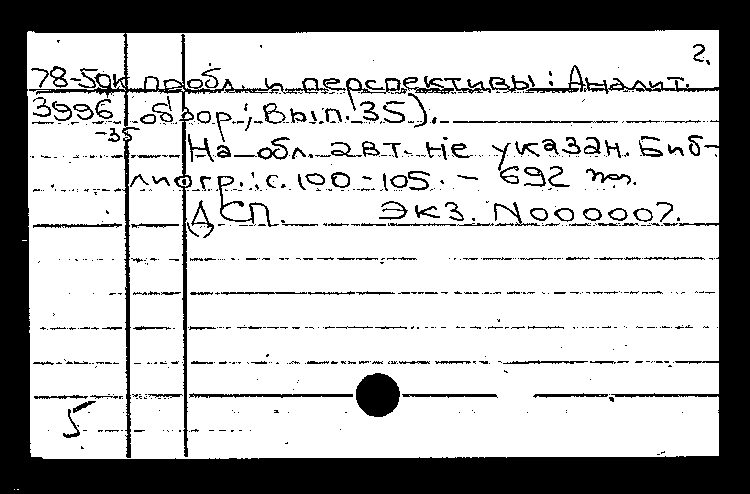 2.
78-5дк пробл. и перспективы: Аналит.
3996 обзор; Вып. 35).
-35
На обл. авт. не указан. Биб-
лиогр.: с. 100-105. - 692
ДСП. Экз. N000007.
5